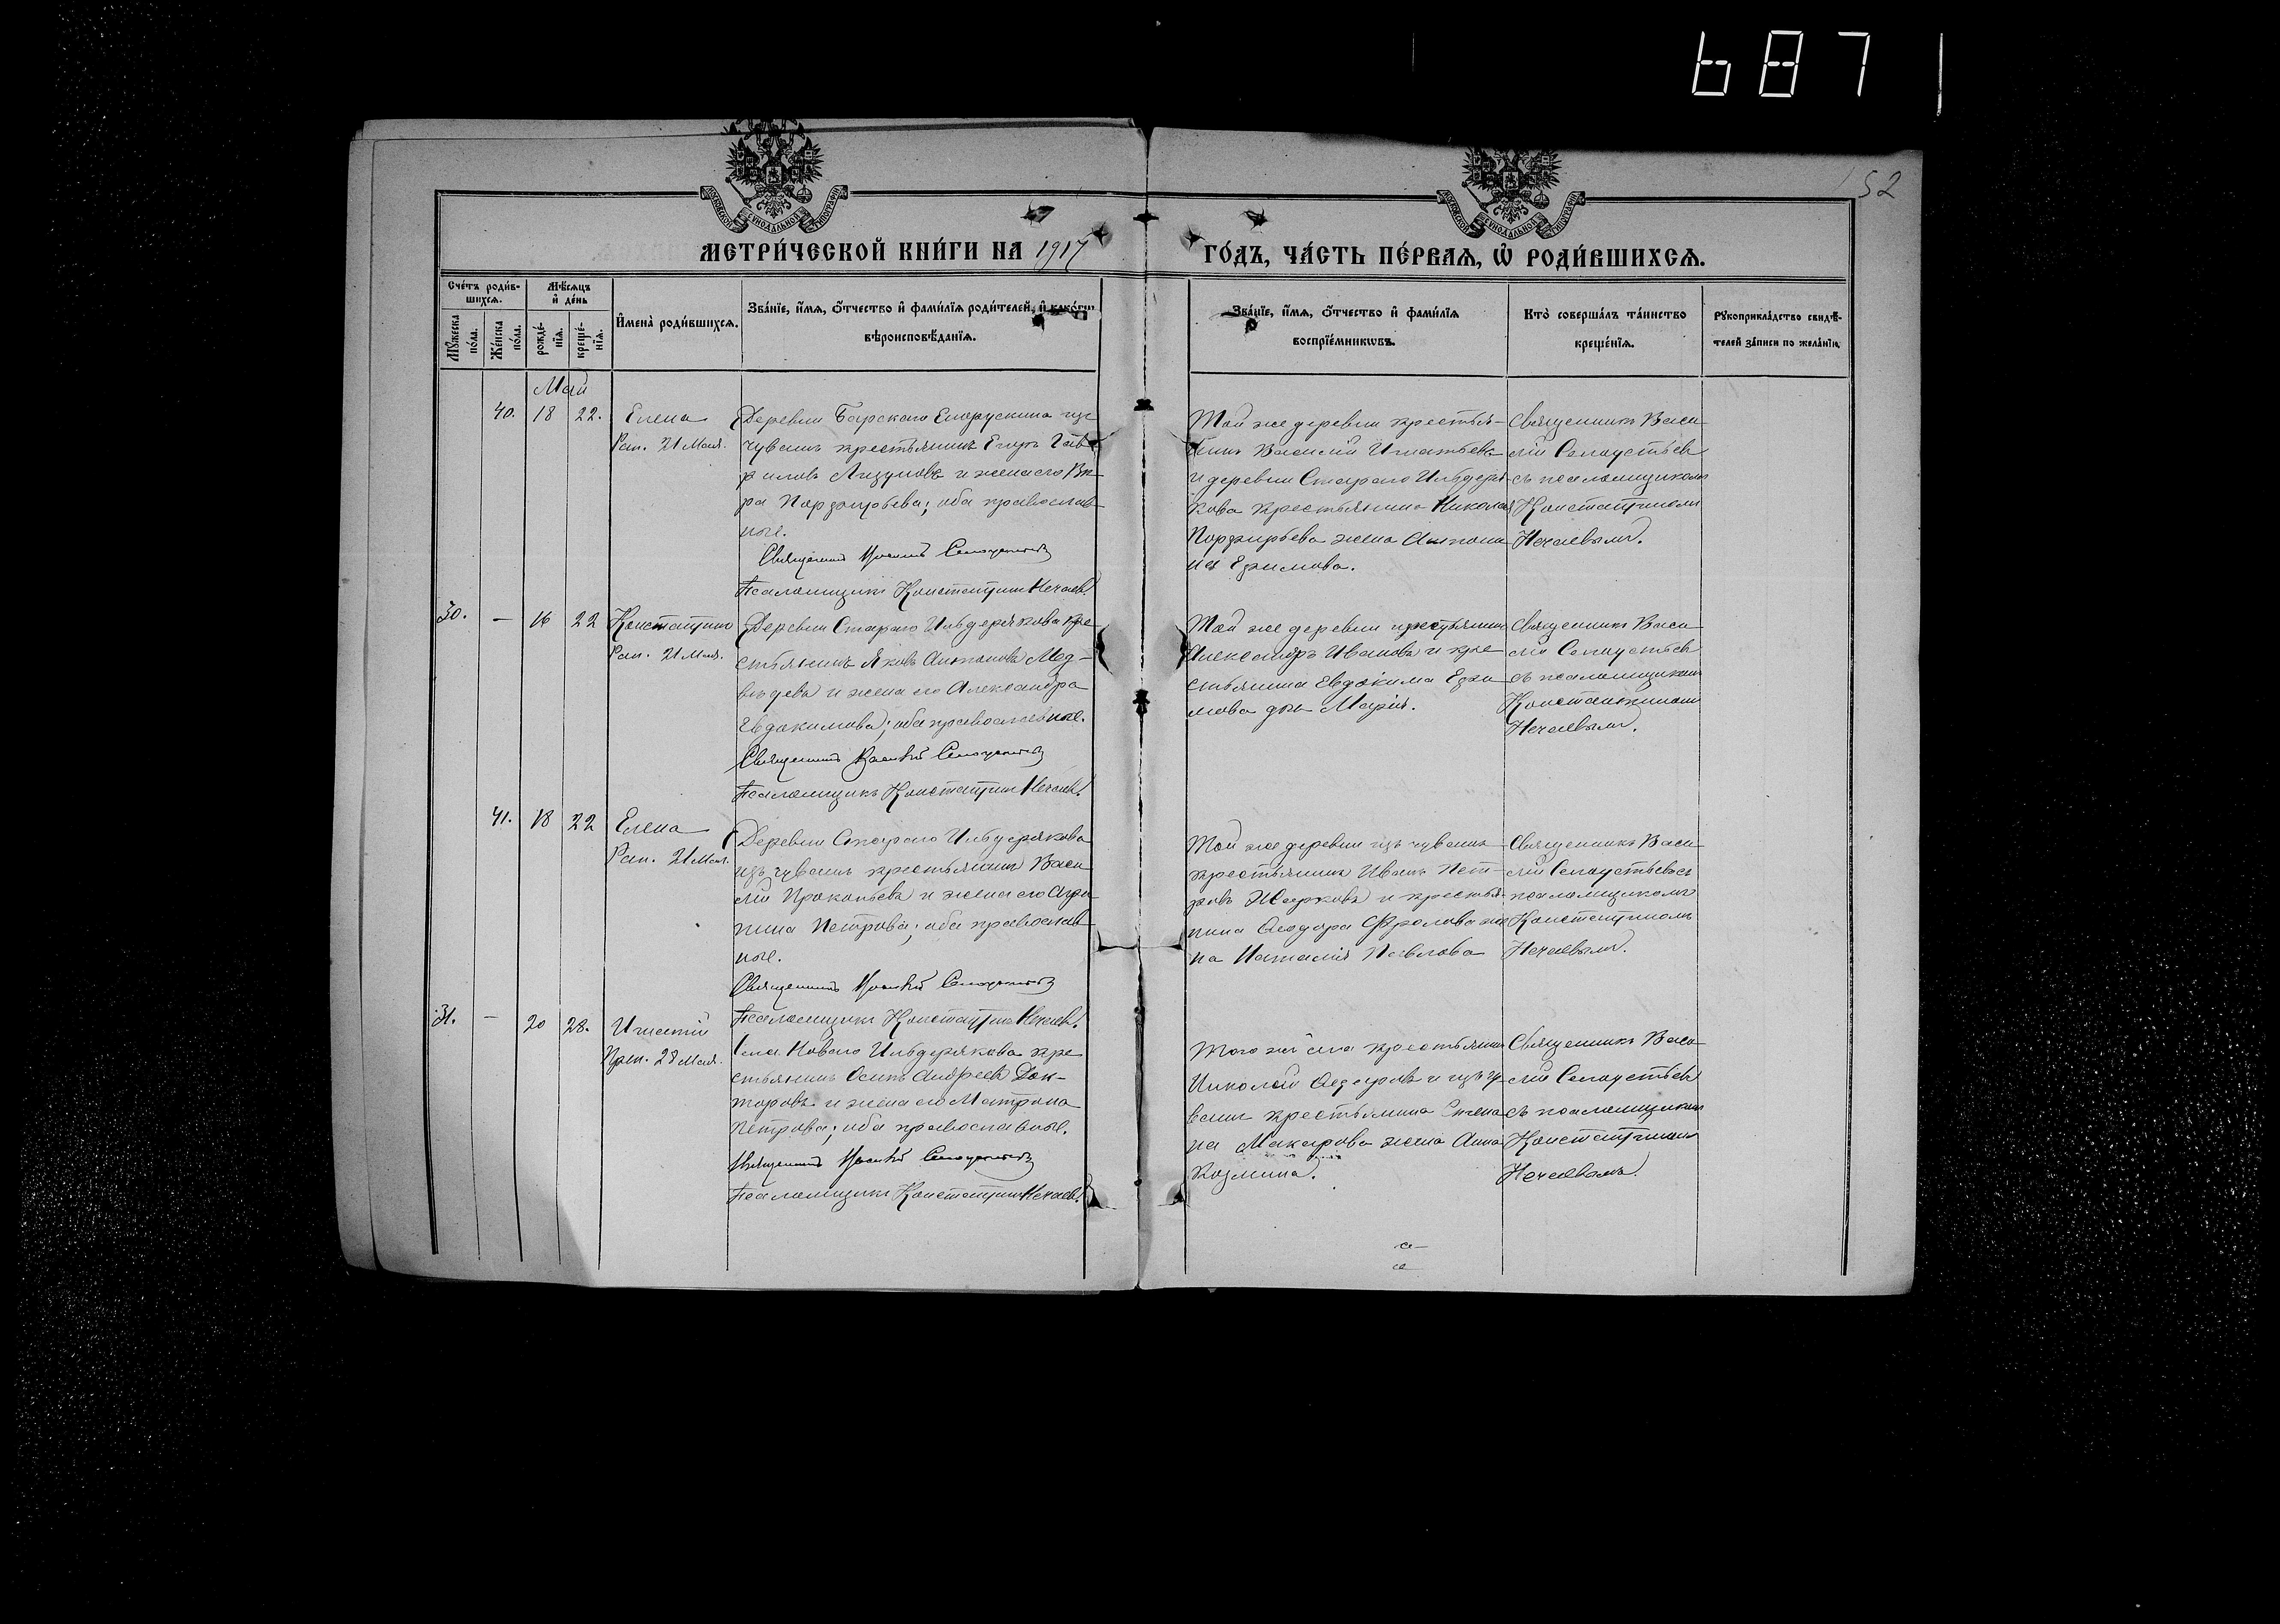 687
52
МОСКОВСКОЙ СѴНОДАЛЬНОЙ ТИПОГРАФІИ
МОСКОВСКОЙ СѴНОДАЛЬНОЙ ТИПОГРАФІИ
МЕТРИ́ЧЕСКОЙ КНИ́ГИ НА 1917
ГО́ДЪ, ЧА́СТЬ ПЕ́РВАѦ, Ѡ҆ РОДИ́ВШИХСѦ.
Сче́тъ роди́в-
шихсѧ.
Мѣ́сѧцъ
и҆ де́нь
Мꙋ́жеска по́ла.
Же́нска по́ла.
рожде́-
нїѧ.
креще́-
нїѧ.
И҆мена̀ роди́вшихсѧ.
Зва́нїе, и҆́мѧ, ѻ҆́тчество и҆ фами́лїѧ роди́телей, и҆ како́гѡ
вѣроисповѣ́данїѧ.
Зва́нїе, и҆́мѧ, ѻ҆́тчество и҆ фами́лїѧ
воспрїе́мникѡвъ.
Кто̀ соверша́лъ та́инство
креще́нїѧ.
Рꙋкоприкла́дство свидѣ́-
телей за́писи по жела́нїю.
Май
40. 18 22. Елена
Рап. 21 Мая.
Деревни Барскаго Енорускина изъ
чувашъ крестьянинъ Егоръ Гав-
риловъ Лизуновъ и жена его Вѣ-
ра Порфирьева; оба православ-
ные.
Священникъ Василій
Псаломщикъ Константинъ Нечаевъ.
Той же деревни крестья-
нинъ Василій Игнатьевъ
и деревни Стараго Ильдеря-
кова крестьянина Николая
Порфирьева жена Антони-
на Ефимова.
Священникъ Васи-
лій
съ псаломщикомъ
Константиномъ
Нечаевымъ.
30. — 16 22 Константинъ
Рап. 21 Мая.
Деревни Стараго Ильдерякова кре-
стьянинъ Яковъ Антоновъ Мед-
вѣдевъ и жена его Александра
Евдокимова; оба православные.
Священникъ Василій
Псаломщикъ Константинъ Нечаевъ.
Той же деревни крестьянинъ
Александръ Ивановъ и кре-
стьянина Евдокима Ефи-
мова дочь Марія.
Священникъ Васи-
лій
съ псаломщикомъ
Константиномъ
Нечаевымъ.
41. 18 22 Елена
Рап. 21 Мая.
Деревни Стараго Ильдерякова
изъ чувашъ крестьянинъ Васи-
лій Прокопьевъ и жена его Агри-
пина Петрова; оба православ-
ные.
Священникъ Василій
Псаломщикъ Константинъ Нечаевъ.
Той же деревни изъ чувашъ
крестьянинъ Иванъ Пет-
ровъ Жарковъ и крестья-
нина Ѳеодора Фролова же-
на Наталія Павлова
Священникъ Васи-
лій съ
псаломщикомъ
Константиномъ
Нечаевымъ.
31. — 20 28. Игнатій
Преп. 28 Мая.
Села Новаго Ильдерякова кре-
стьянинъ Осипъ Андреевъ Док-
торовъ и жена его Матрона
Петрова; оба православные.
Священникъ Василій
Псаломщикъ Константинъ Нечаевъ.
Того же села крестьянинъ
Николай Ѳедоровъ и изъ чу-
вашъ крестьянина Степа-
на Макарова жена Анна
Козмина.
Священникъ Васи-
лій
съ псаломщикомъ
Константиномъ
Нечаевымъ.